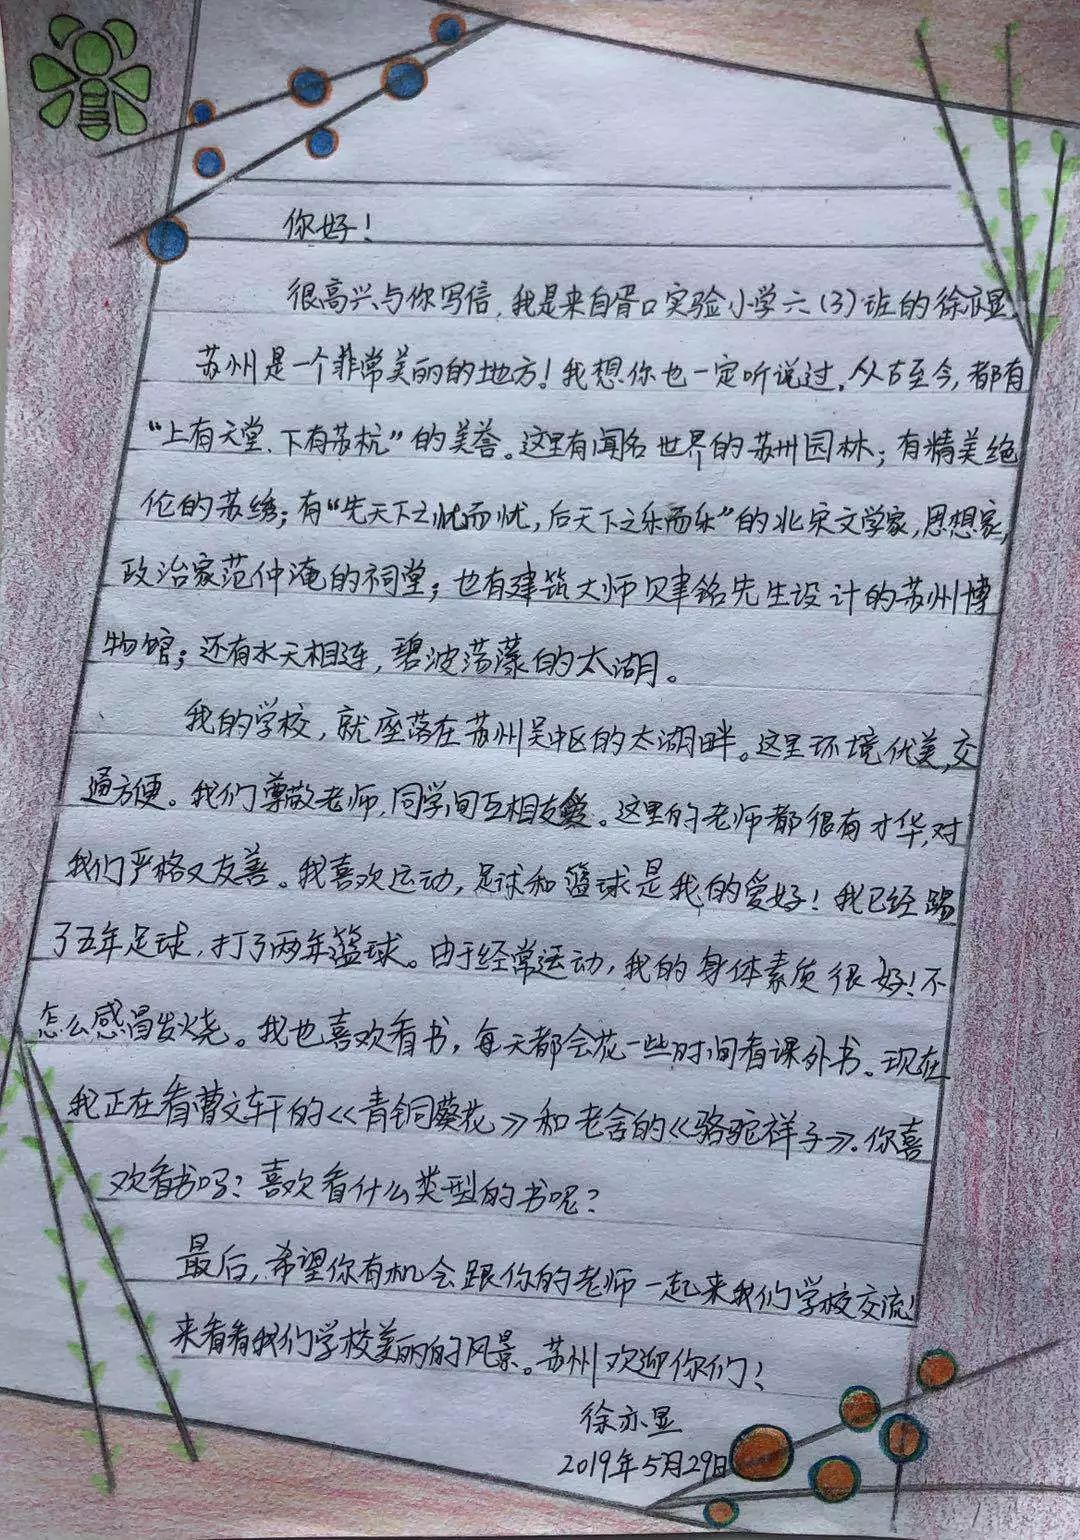 你好！
很高兴与你写信，我是来自胥口实验小学六（3）班的徐亦显。
苏州是一个非常美丽的地方！我想你也一定听说过。从古至今，都有
“上有天堂、下有苏杭”的美誉。这里有闻名世界的苏州园林；有精美绝
伦的苏绣；有“先天下之忧而忧，后天下之乐而乐”的北宋文学家，思想家，
政治家范仲淹的祠堂；也有建筑大师贝聿铭先生设计的苏州博
物馆；还有水天相连，碧波荡漾的太湖。
我的学校，就座落在苏州吴中区的太湖畔。这里环境优美，交
通方便。我们尊敬老师，同学间互相友爱。这里的老师都很有才华，对
我们严格又友善。我喜欢运动，足球和篮球是我的爱好！我已经踢
了五年足球，打了两年篮球。由于经常运动，我的身体素质很好！不
怎么感冒发烧。我也喜欢看书，每天都会花一些时间看课外书。现在
我正在看曹文轩的《青铜葵花》和老舍的《骆驼祥子》。你喜
欢看书吗？喜欢看什么类型的书呢？
最后，希望你有机会跟你的老师一起来我们学校交流！
来看看我们学校美丽的风景。苏州欢迎你们！
徐亦显
2019年5月29日